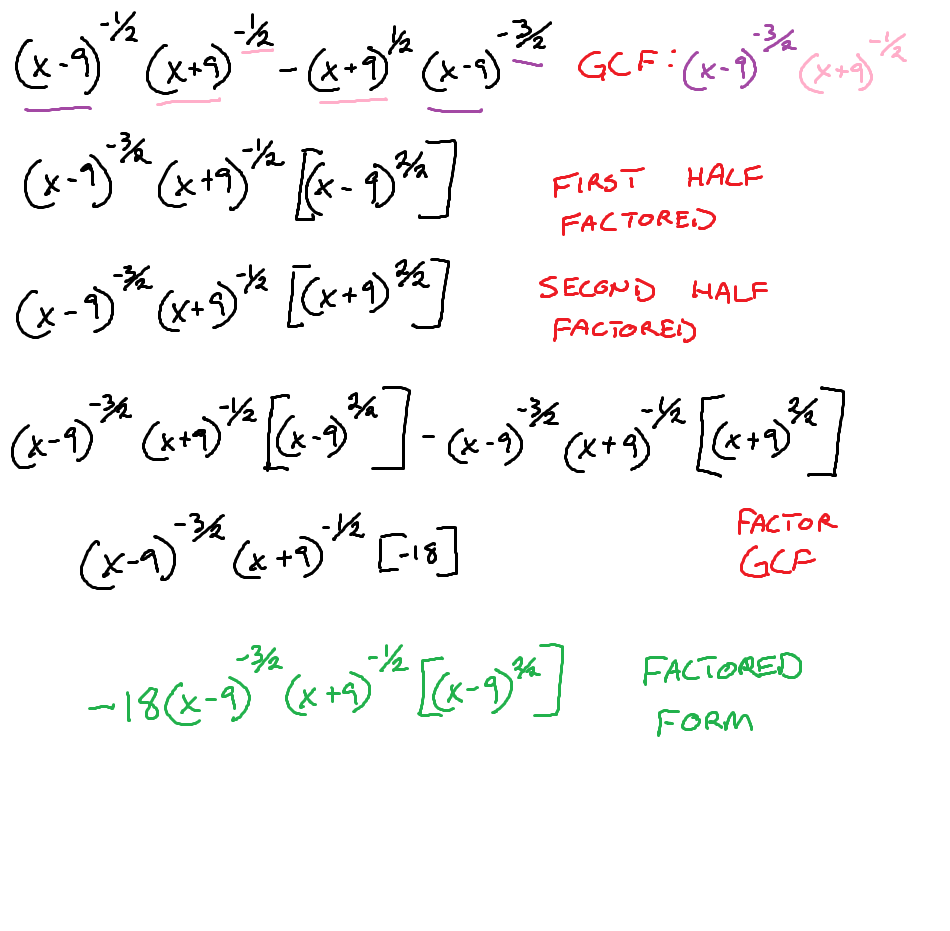 (x-9)^{-1/2} (x+9)^{-1/2} - (x+9)^{1/2} (x-9)^{-3/2} GCF: (x-9)^{-3/2} (x+9)^{-1/2}
(x-9)^{-3/2} (x+9)^{-1/2} [(x-9)^{2/2}] FIRST HALF
FACTORED
(x-9)^{-3/2} (x+9)^{-1/2} [(x+9)^{2/2}] SECOND HALF
FACTORED
(x-9)^{-3/2} (x+9)^{-1/2} [(x-9)^{2/2}] - (x-9)^{-3/2} (x+9)^{-1/2} [(x+9)^{2/2}]
(x-9)^{-3/2} (x+9)^{-1/2} [-18] FACTOR
GCF
-18(x-9)^{-3/2} (x+9)^{-1/2} [(x-9)^{2/2}] FACTORED
FORM